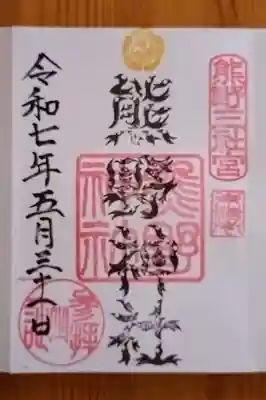 熊野三社宮
熊野神社
熊野神社
令和七年五月三十一日